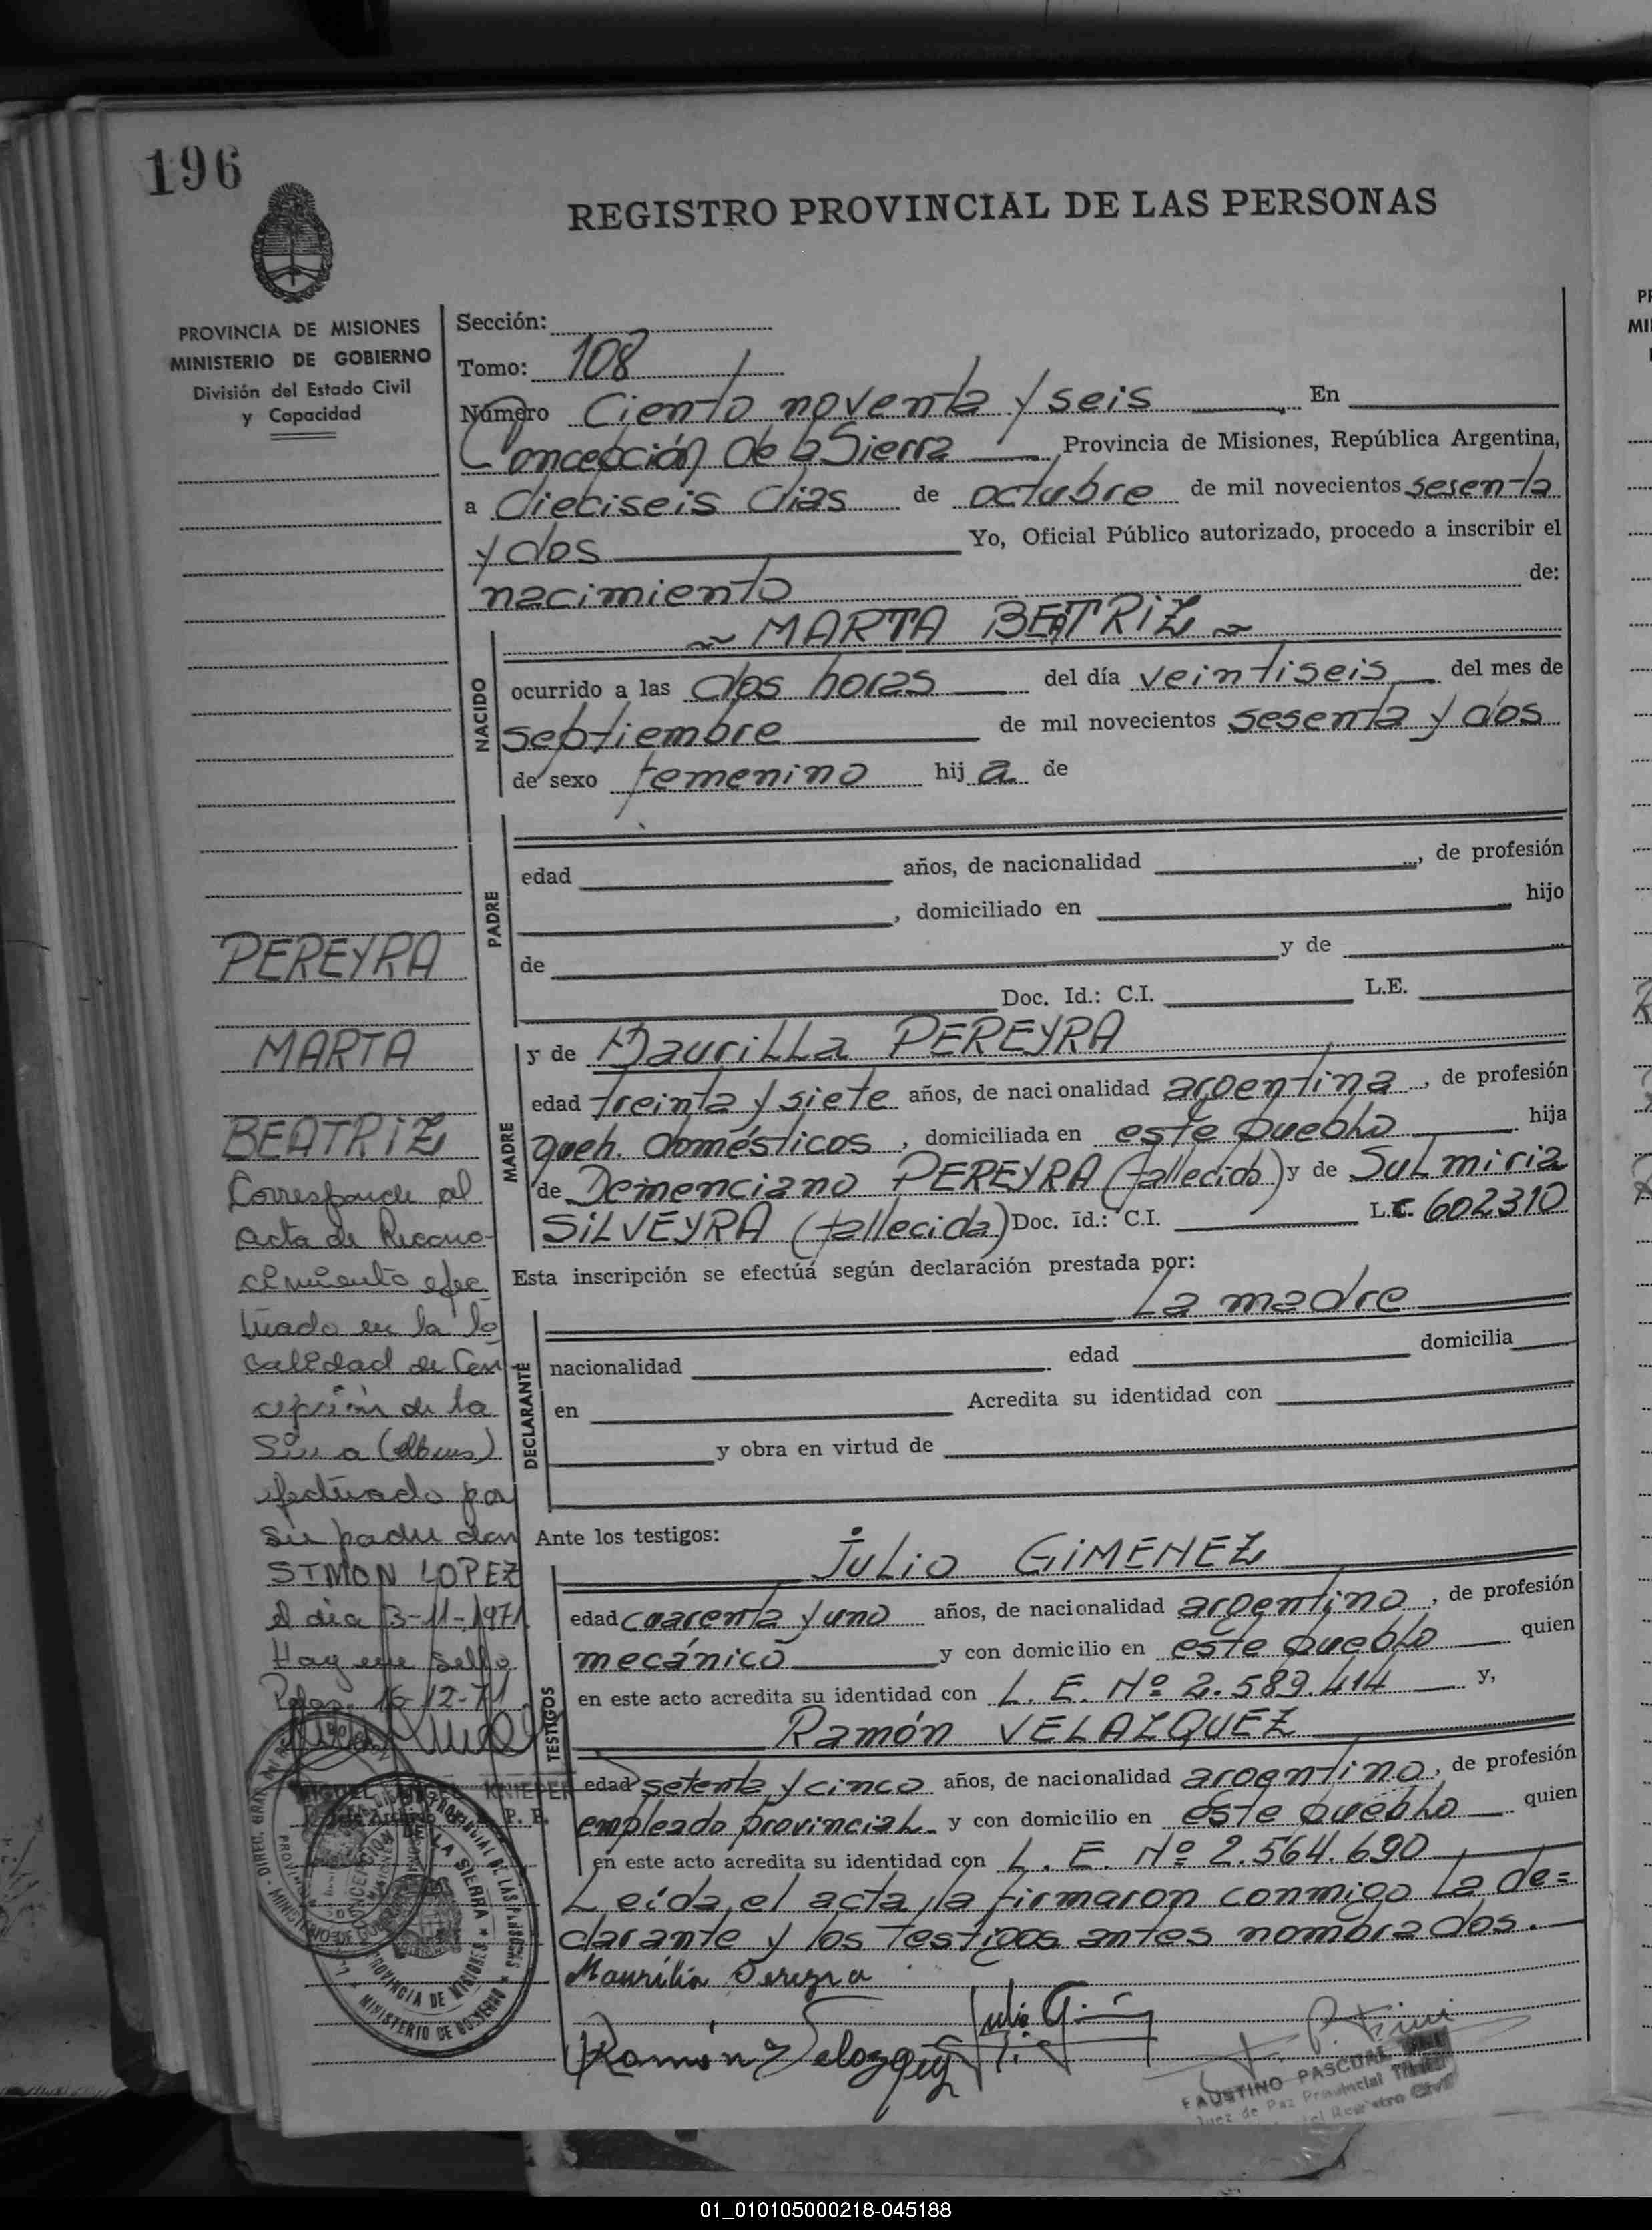 196
REGISTRO PROVINCIAL DE LAS PERSONAS
PROVINCIA DE MISIONES
MINISTERIO DE GOBIERNO
División del Estado Civil
y Capacidad
Sección:
Tomo: 108
Número Ciento noventa y seis En
Concepción de la Sierra Provincia de Misiones, República Argentina,
a dieciseis dias de octubre de mil novecientos sesenta
y dos Yo, Oficial Público autorizado, procedo a inscribir el
nacimiento de:
MARTA BEATRIZ
NACIDO
ocurrido a las dos horas del día veintiseis del mes de
septiembre de mil novecientos sesenta y dos
de sexo femenino hij a de
PADRE
edad años, de nacionalidad , de profesión
, domiciliado en hijo
de y de
Doc. Id.: C.I. L.E.
MADRE
y de Maurilla PEREYRA
edad treinta y siete años, de nacionalidad argentina, de profesión
queh. domésticos, domiciliada en este pueblo hija
de Demenciano PEREYRA (fallecido) y de Sulmiria
SILVEYRA (fallecida) Doc. Id.: C.I. L.C. 602310
Esta inscripción se efectúá según declaración prestada por:
La madre
DECLARANTE
nacionalidad edad domicilia
en Acredita su identidad con
y obra en virtud de
Ante los testigos:
Julio GIMENEZ
TESTIGOS
edad cuarenta y uno años, de nacionalidad argentino, de profesión
mecánico y con domicilio en este pueblo quien
en este acto acredita su identidad con L. E. Nº 2.589.414 y,
Ramón VELAZQUEZ
edad setenta y cinco años, de nacionalidad argentino, de profesión
empleado provincial y con domicilio en este pueblo quien
en este acto acredita su identidad con L. E. Nº 2.564.690
Leída el acta, la firmaron conmigo la de=
clarante y los testigos antes nombrados.
Maurilia Pereyra
Julio
Ramón Velazquez
FAUSTINO PASCUAL
Juez de Paz Provincial
del Registro Civil
PEREYRA
MARTA
BEATRIZ
Corresponde al
acta de Recono-
cimiento efec-
tuado en la lo
calidad de Con
cepción de la
Sierra
efectuado por
su padre don
SIMON LOPEZ
el día 3-11-1971
Hay un sello
Pdas. 16-12-71
KNIEPER
LA SIERRA
PROVINCIA DE MISIONES
MINISTERIO DE GOBIERNO
01_010105000218-045188